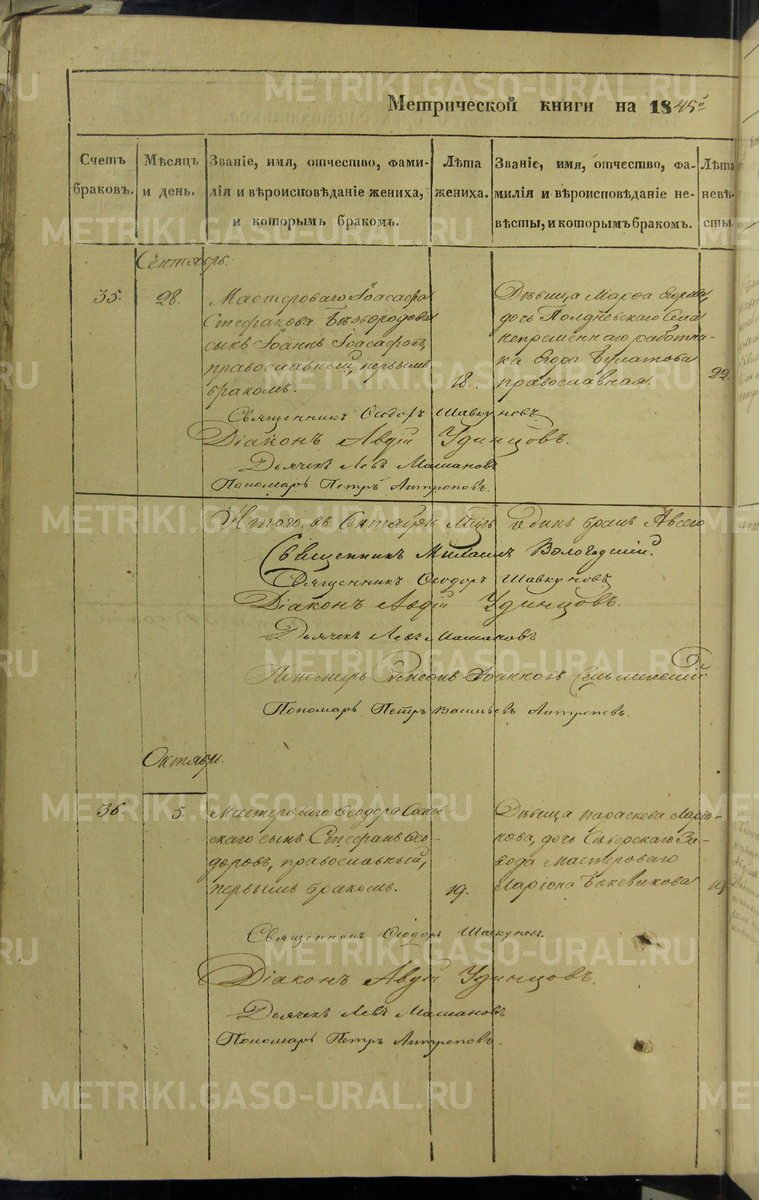 Метрической книги на 1845й
Счетъ браковъ.
Мѣсяцъ и день.
Званіе, имя, отчество, фами-
лія и вѣроисповѣданіе жениха,
и которымъ бракомъ.
Лѣта
жениха.
Званіе, имя, отчество, фа-
милія и вѣроисповѣданіе не-
вѣсты, и которымъ бракомъ.
Лѣта
невѣ-
сты.
Сентябрь.
35.
28.
Мастероваго Іоасафа
Стефанова Безбородова
сынъ Іоаннъ Іоасафовъ,
православный, первымъ
бракомъ.
18.
Дѣвица Марѳа Егорова,
дочь Полдневскаго Села
непременнаго работни-
ка Егора Булатова
православная
22.
Священникъ Ѳеодоръ Шавкуновъ
Діаконъ Авдій Удинцовъ.
Дьячекъ Левъ Машановъ
Пономарь Петръ Антроповъ.
Итого въ Сентябрѣ М-цѣ Единъ бракъ
Священникъ Михаилъ Вологодскій.
Священникъ Ѳеодоръ Шавкуновъ
Діаконъ Авдій Удинцовъ.
Дьячекъ Левъ Машановъ
Пономарь Петръ Васильевъ Антроповъ.
Октябрь.
36.
5.
Мастероваго Ѳеодора
скаго сынъ Стефанъ Ѳео-
доровъ, православный,
первымъ бракомъ.
19.
Дѣвица Параскева Ларіо-
нова, дочь Сѣверскаго За-
вода мастероваго
Ларіона Боковикова
19
Священникъ Ѳеодоръ Шавкуновъ.
Діаконъ Авдій Удинцовъ.
Дьячекъ Левъ Машановъ
Пономарь Петръ Антроповъ.
METRIKI.GASO-URAL.RU